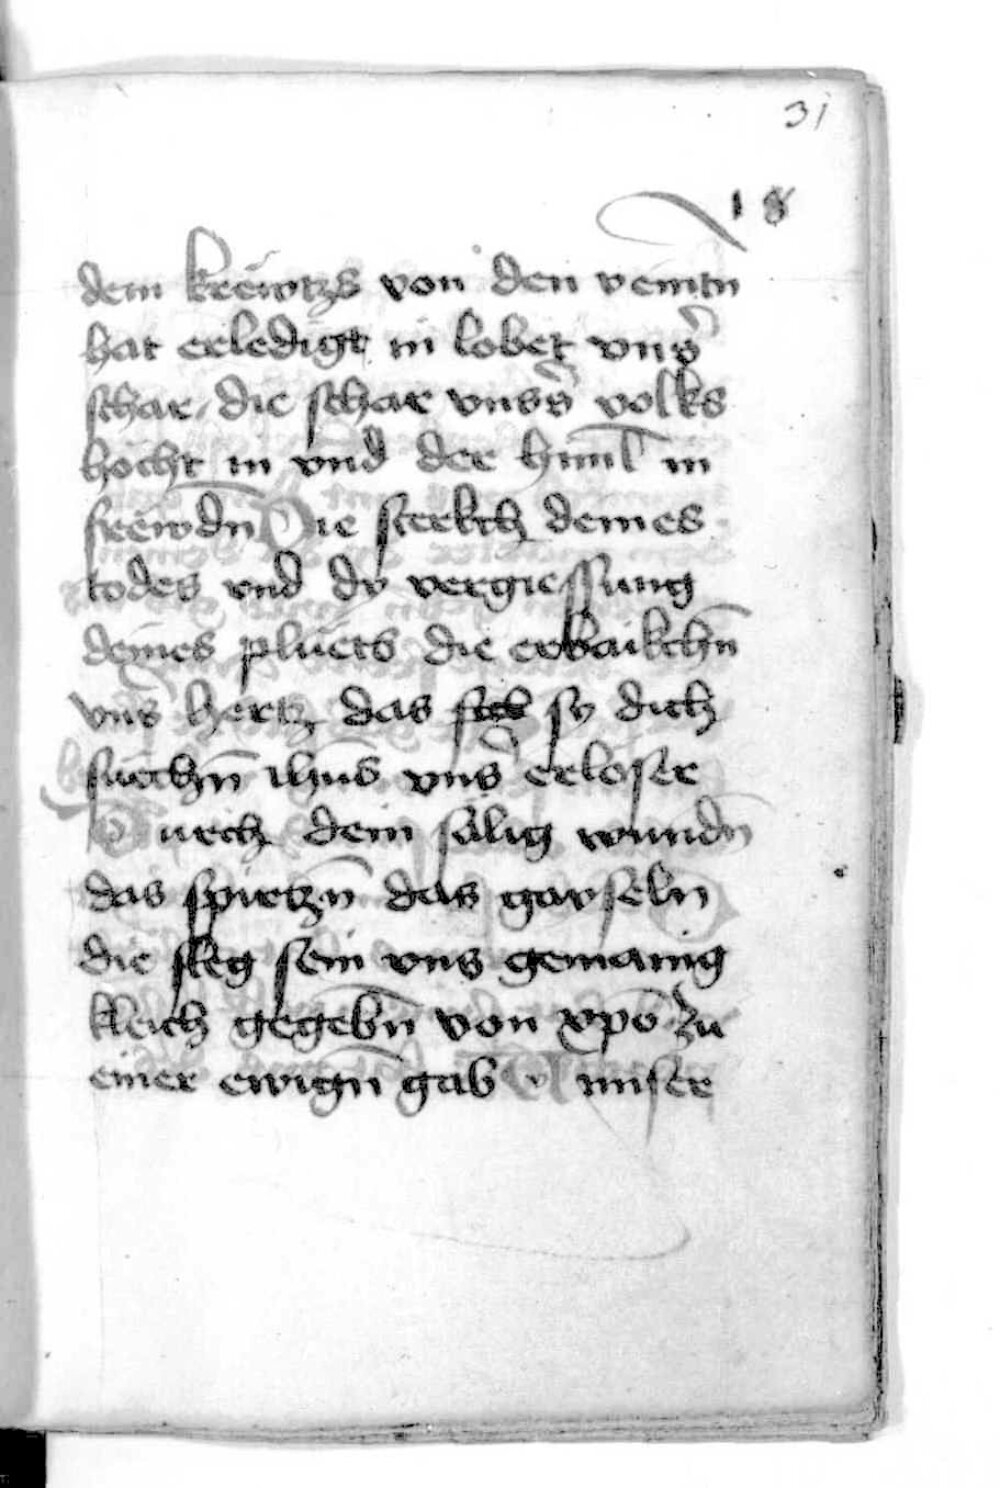 31
18
dem krëwtzs von den veintn
hat erledigt in lobet vnser
schar / die schar vnsers volks
höcht in vnd der himl in
frëwdn Die sterkch deines
todes vnd dÿ vergiessung
deines pluets die erbaikchn̄
vns̄ hertz das sy dich
suechn̄ ihūs vns̄ erloser
Durch dein sälig wundn̄
das spirtzn̄ das gayseln
die sleg sein vns gemainig
kleich gegebn̄ von xpō zu
einer ewign̄ gab Vnnser